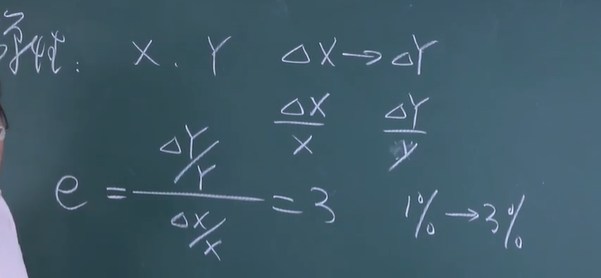 弹性： X . Y △X→△Y
△X/X △Y/Y
e = (△Y/Y)/(△X/X) = 3 1%→3%